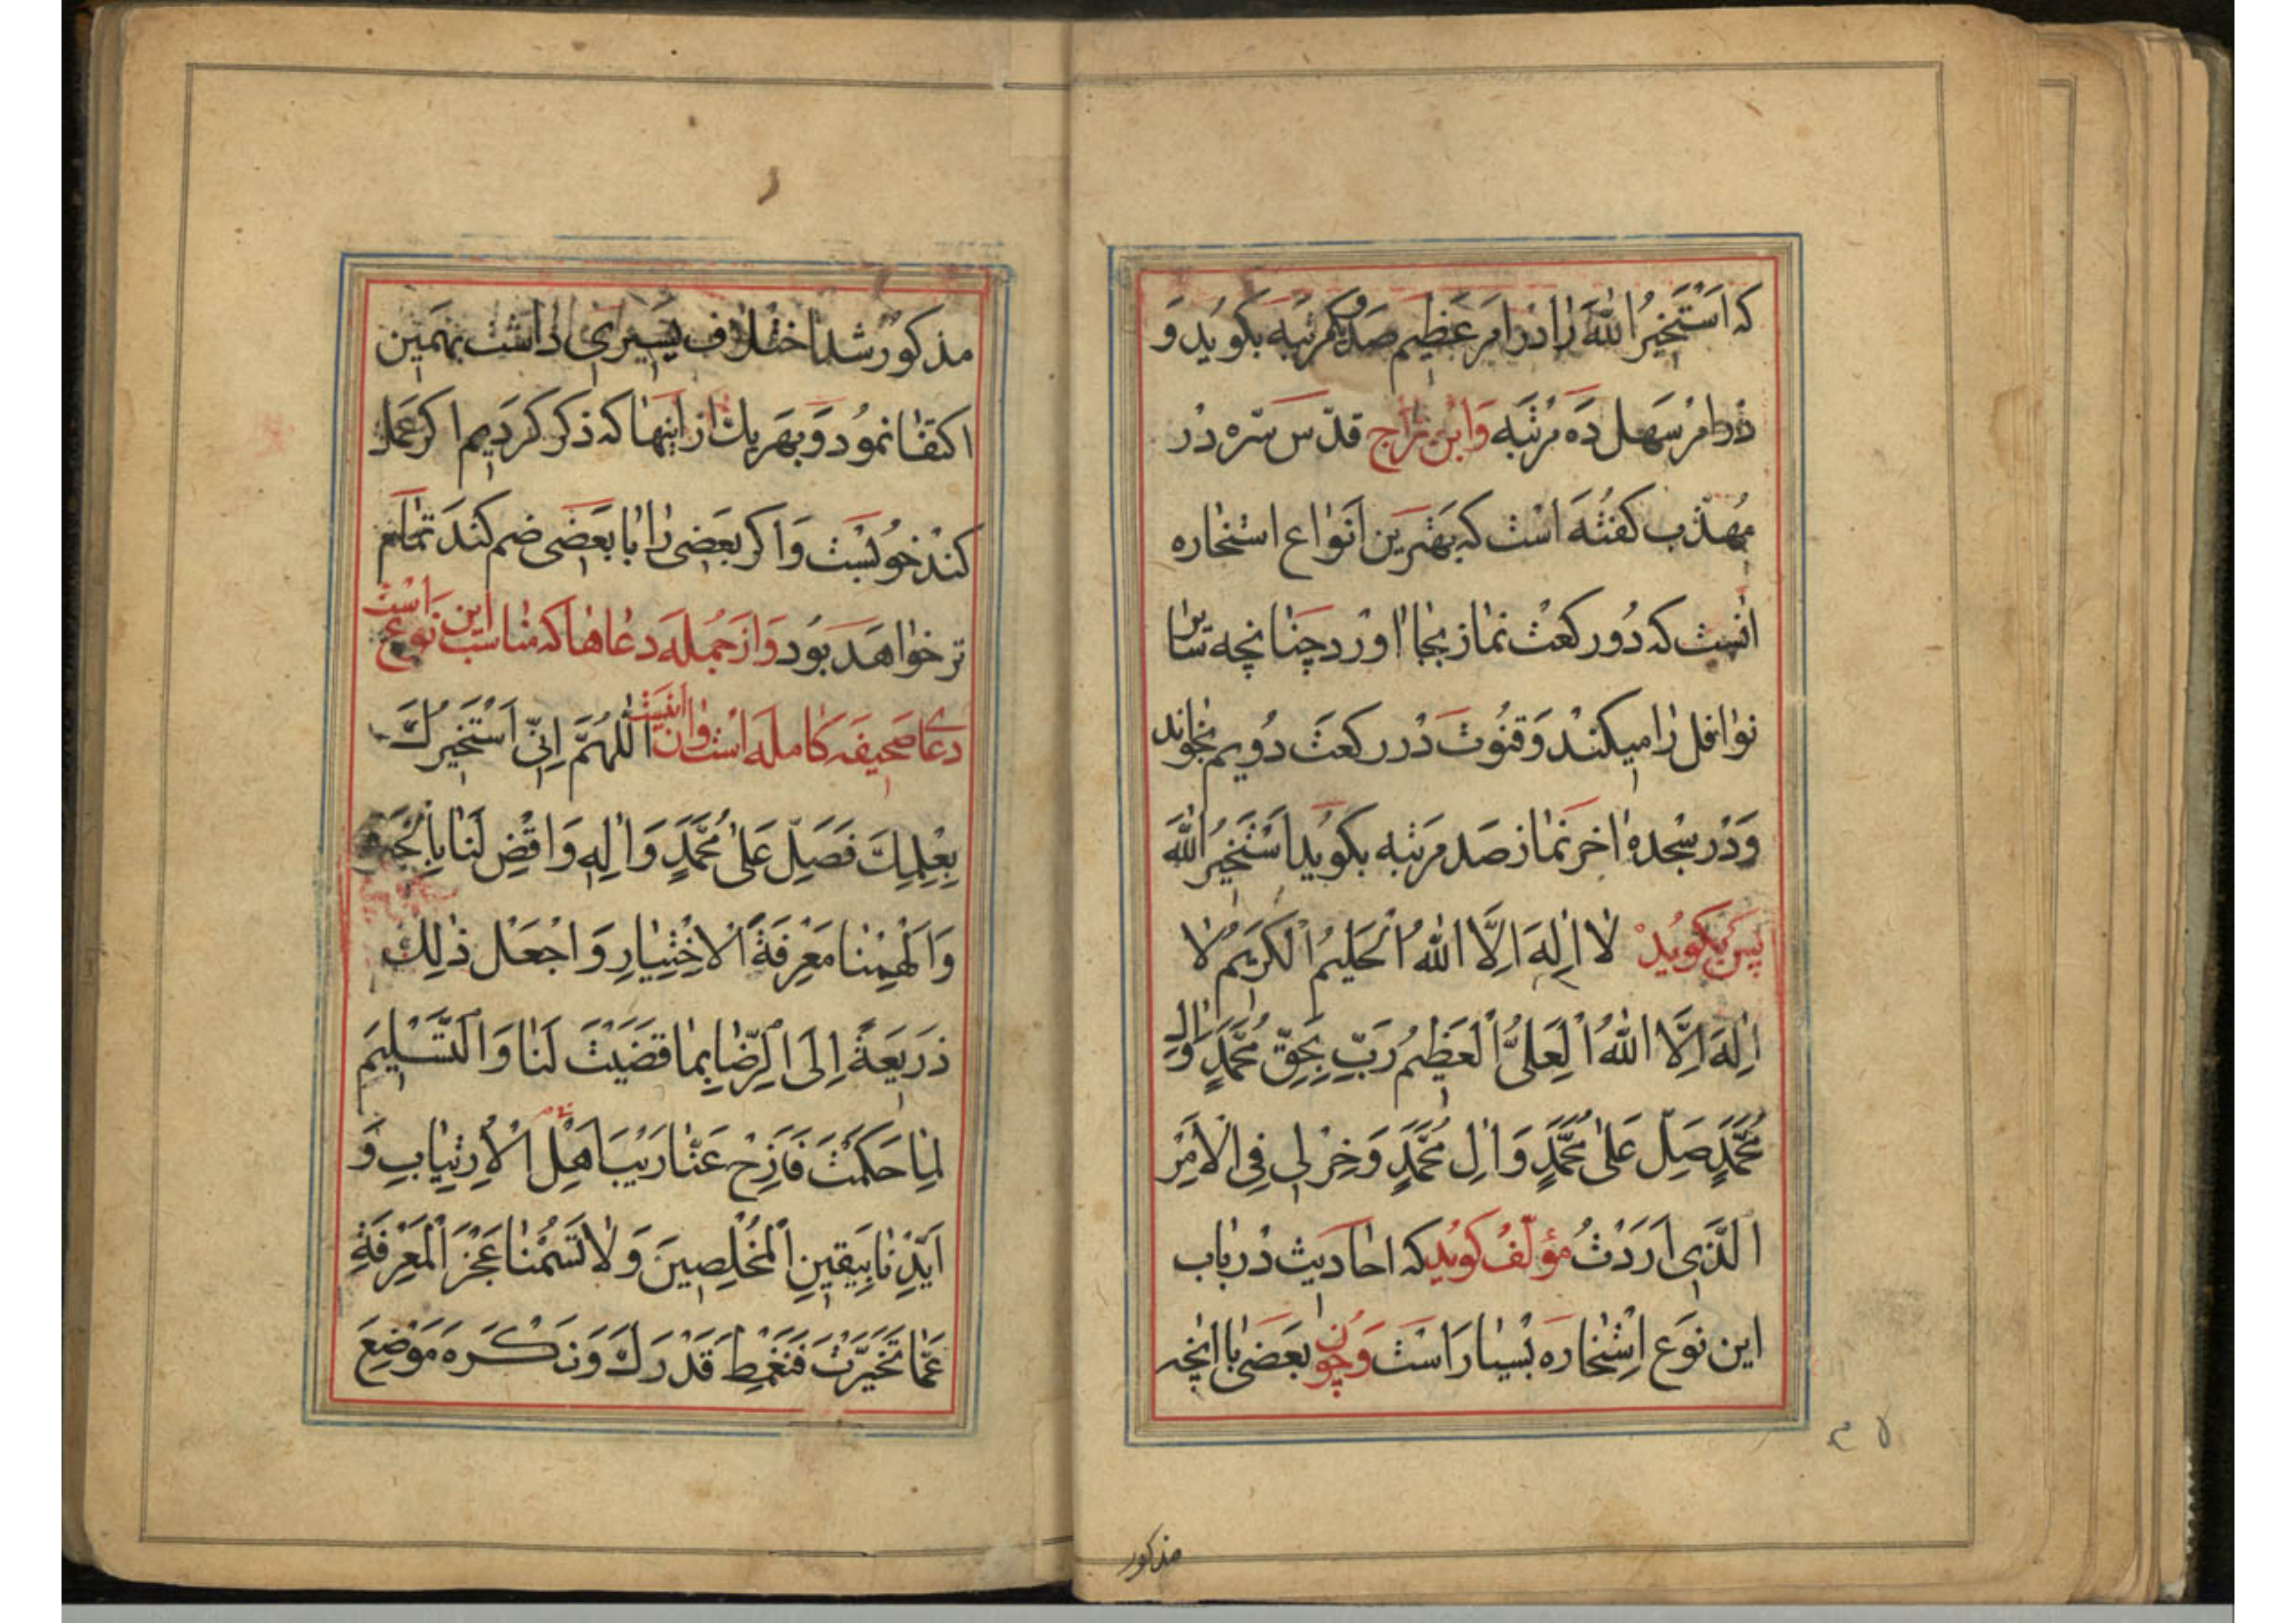 که اَسْتَخیرُ اللهَ را در امر عظیم صد مرتبه بکوید و
در امر سهل ده مرتبه وابن براج قدّس سّره در
مهذّب کفته است که بهترین انواع استخاره
آنست که دو رکعت نماز بجا اورد چنانچه سایر
نوافل را میکند و قنوت در رکعت دویم بخواند
و در سجدهٔ اخر نماز صد مرتبه بکوید اَسْتَخیرُ اللهَ
پس بکوید لا اِلهَ اِلَّا اللهُ الْحَلیمُ الْکَریمُ لا
اِلهَ اِلَّا اللهُ الْعَلیُّ الْعَظیمُ رَبِّ بِحَقِّ مُحَمَّدٍ وَالِ
مُحَمَّدٍ صَلِّ عَلیٰ مُحَمَّدٍ وَالِ مُحَمَّدٍ وَخِرْ لی فِی الْاَمْرِ
الَّذی اَرَدْتُ مؤلّف کوید که احادیث در باب
این نوع استخاره بسیار است و چون بعضی با انچه
مذکور
مذکور شد اختلاف یسیری داشت بهمین
اکتفا نمود و بهر یک از اینها که ذکر کردیم اکر عمل
کند خوبست و اکر بعضی را با بعضی ضم کند تمام
تر خواهد بود و از جمله دعاها که مناسب این نوع است
دعای صحیفه کامله است و ان اینست اَللّهُمَّ اِنّی اَسْتَخیرُکَ
بِعِلْمِکَ فَصَلِّ عَلیٰ مُحَمَّدٍ وَالِهِ وَاقْضِ لَنا بِالْخِیَرَةِ
وَاَلْهِمْنا مَعْرِفَةَ الْاِخْتِیارِ وَاجْعَلْ ذٰلِکَ
ذَریعَةً اِلَی الرِّضا بِما قَضَیْتَ لَنا وَالتَّسْلیمِ
لِما حَکَمْتَ فَاَزِحْ عَنّا رَیْبَ اَهْلِ الْاِرْتِیابِ وَ
اَیِّدْنا بِیَقینِ الْمُخْلِصینَ وَلا تَسُمْنا عَجْزَ الْمَعْرِفَةِ
عَمّا تَخَیَّرْتَ فَنَغْمِطَ قَدْرَکَ وَنَکْرَهَ مَوْضِعَ